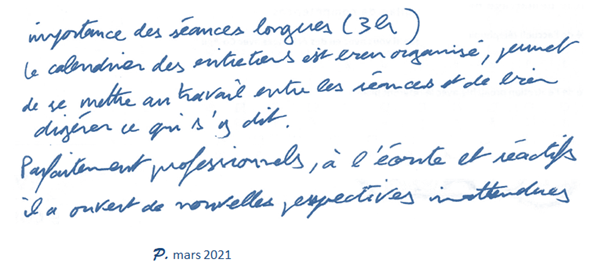 importance des séances longues (3h)
le calendrier des entretiens est bien organisé, permet
de se mettre au travail entre les séances et de bien
digérer ce qui s'y dit.
Parfaitement professionnels, à l'écoute et réactifs
il a ouvert de nouvelles perspectives inattendues
P. mars 2021